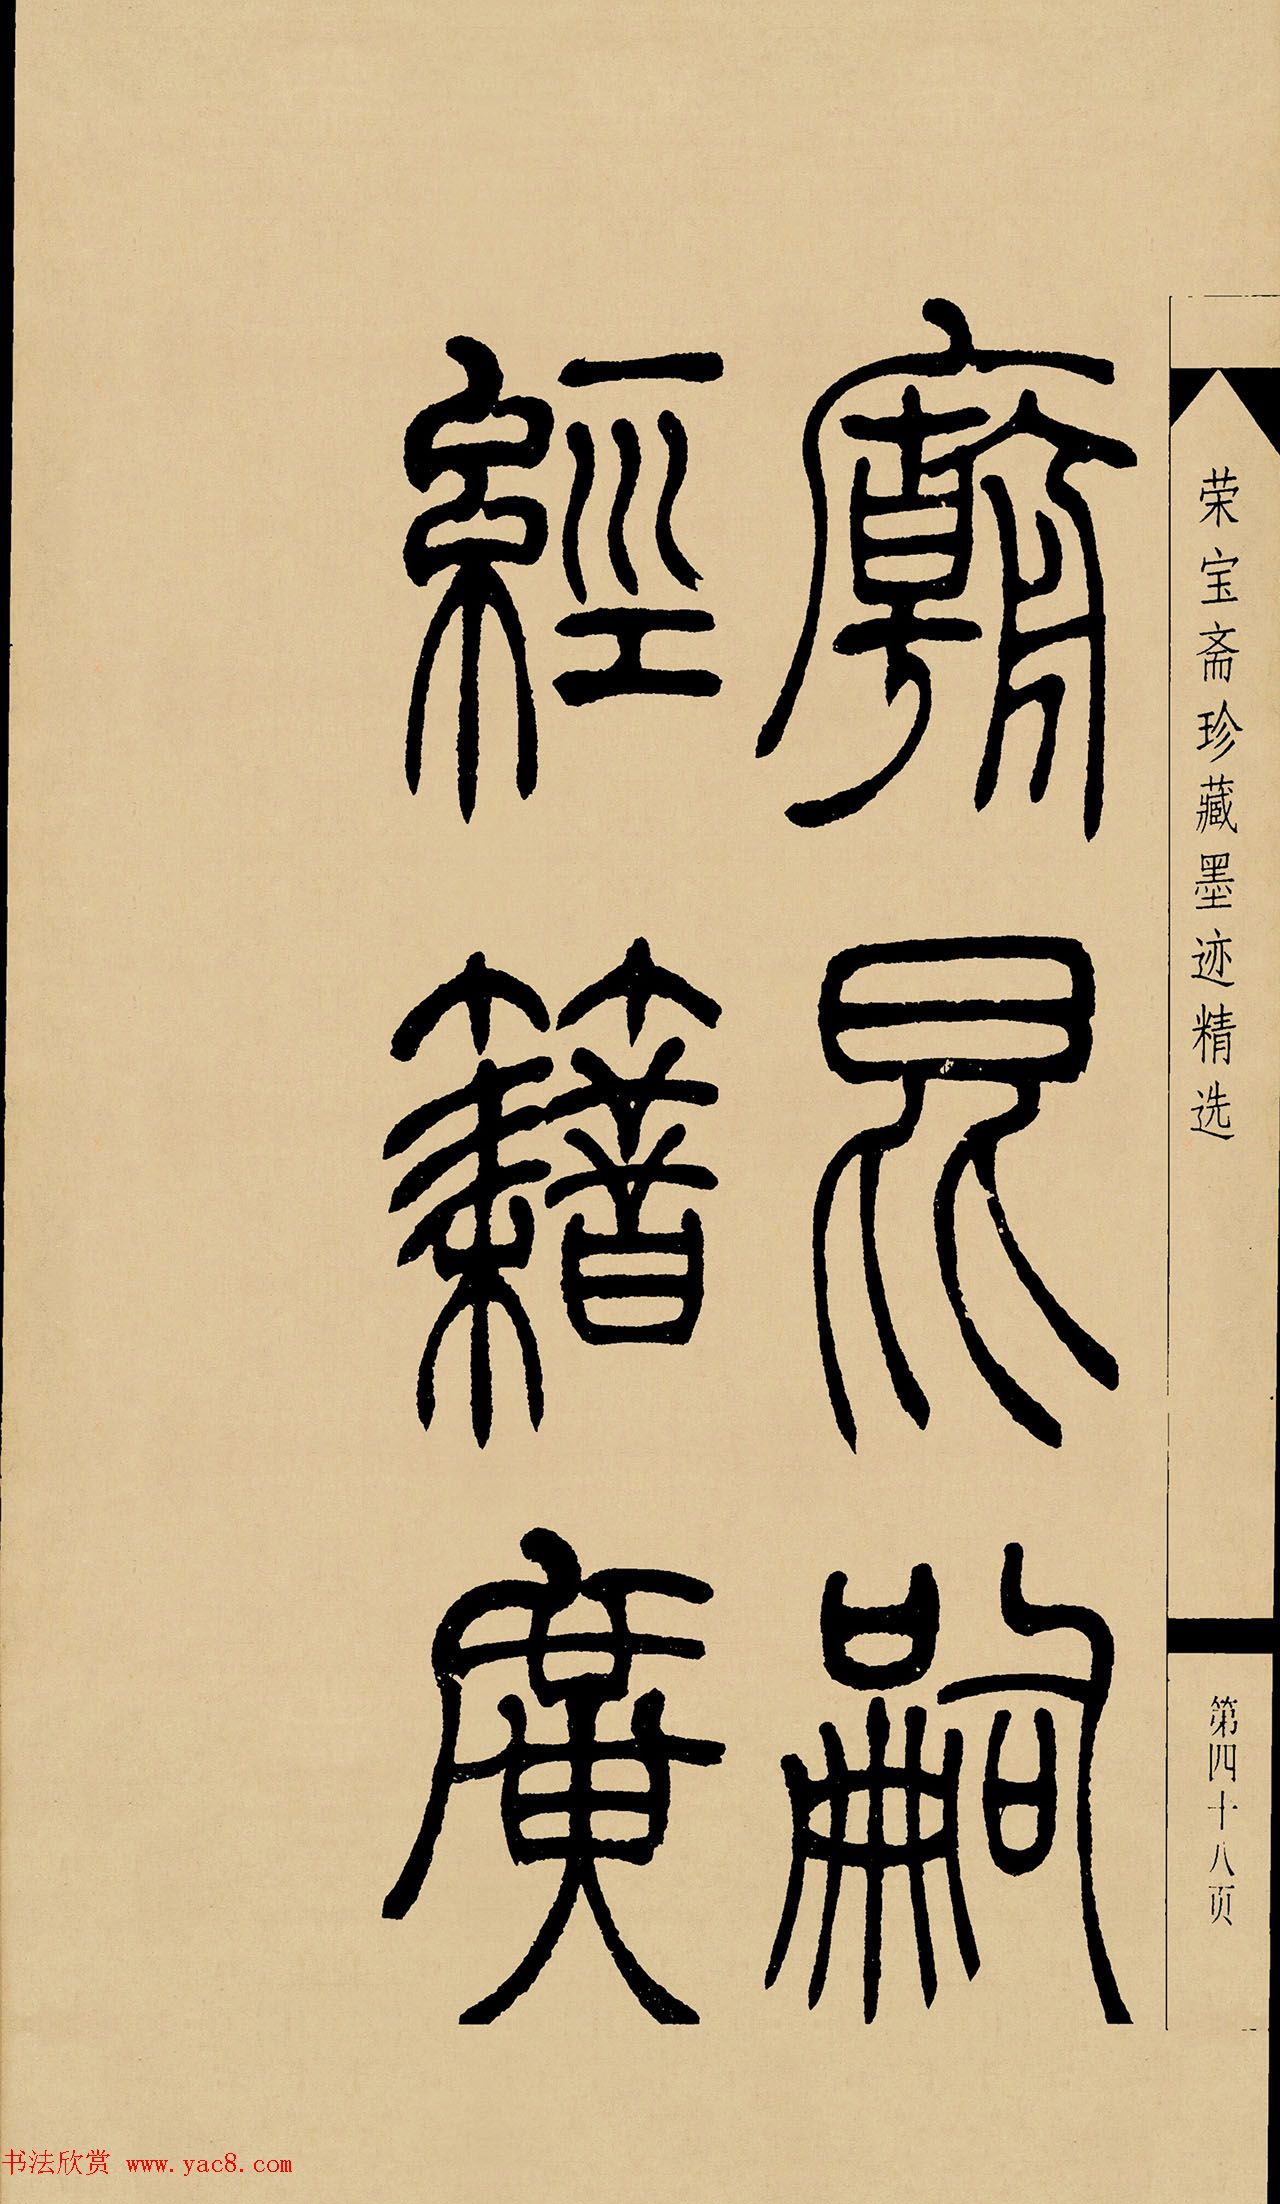 荣宝斋珍藏墨迹精选
第四十八页
廟昆嗣
經籍廣
书法欣赏 www.yac8.com